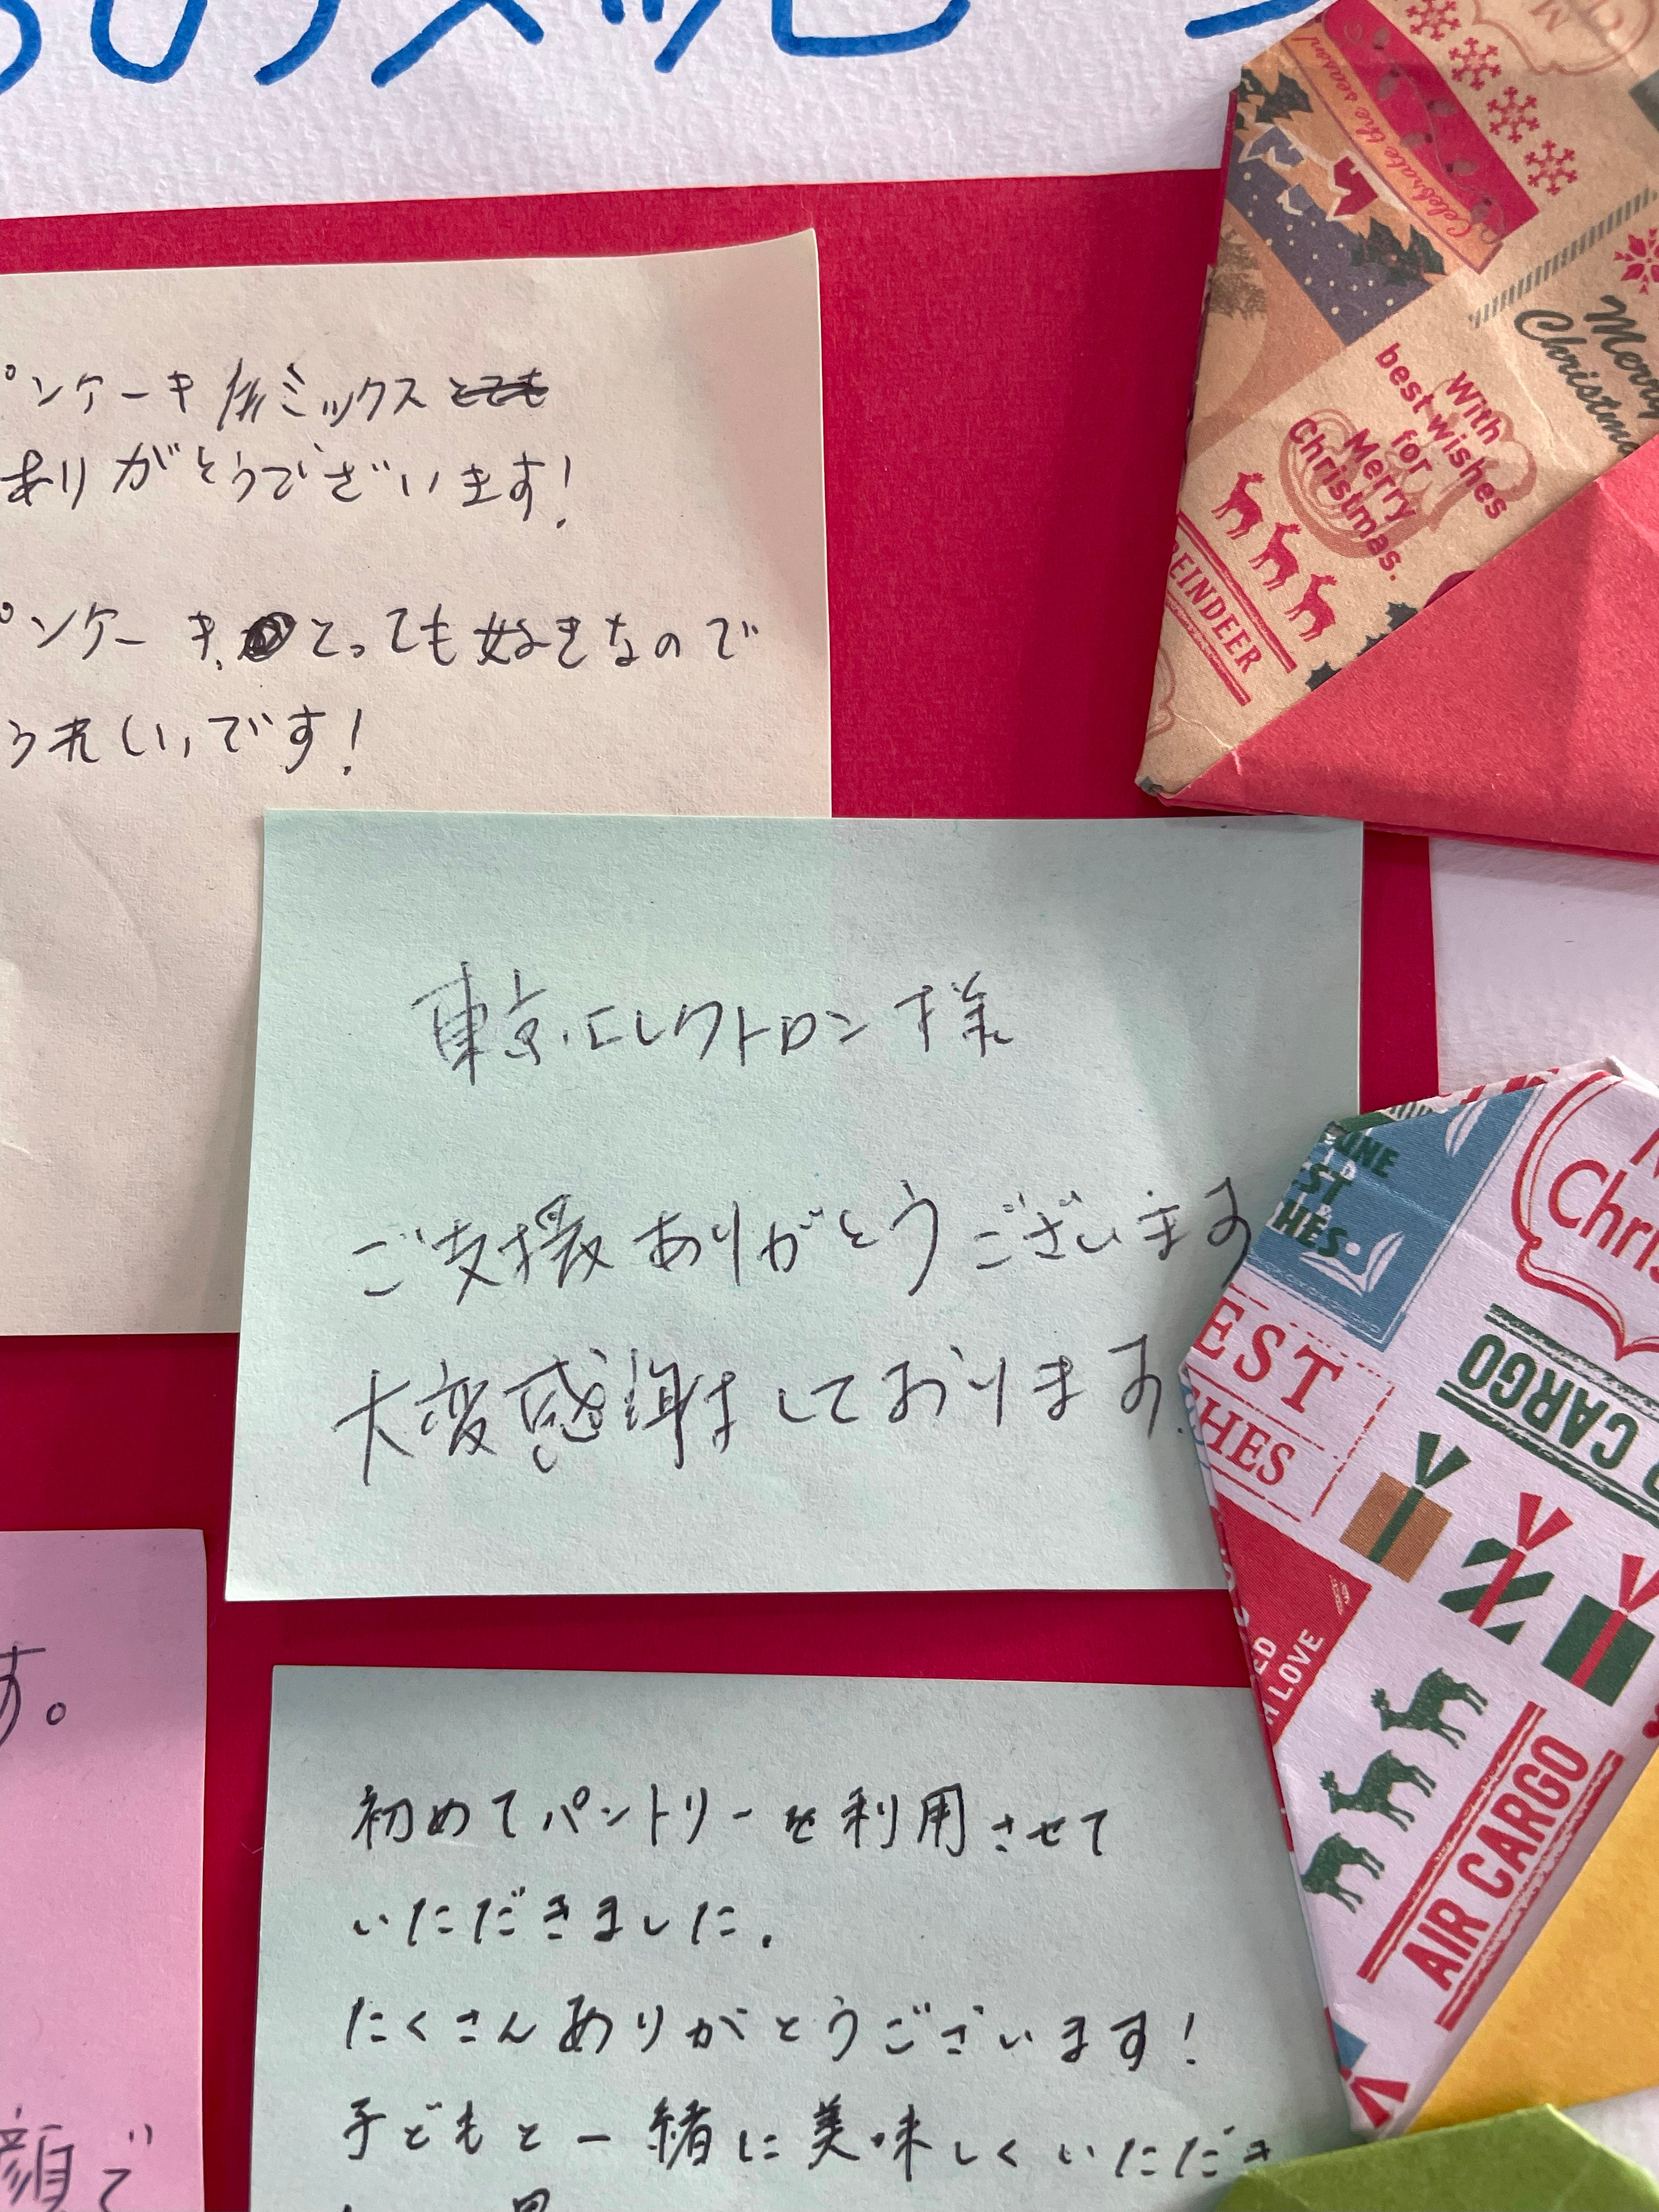 メッセ
パンケーキミックス
ありがとうございます！
パンケーキ、とっても好きなので
うれしいです！
東京エレクトロン様
ご支援ありがとうございます
大変感謝しております。
す。
顔で
初めてパントリーを利用させて
いただきました。
たくさんありがとうございます！
子どもと一緒に美味しくいただき
Celebrate the season!
Merry
Christmas
With
best wishes
for
Merry
Christmas.
REINDEER
HES
EST
HES
CARGO
LOVE
AIR CARGO